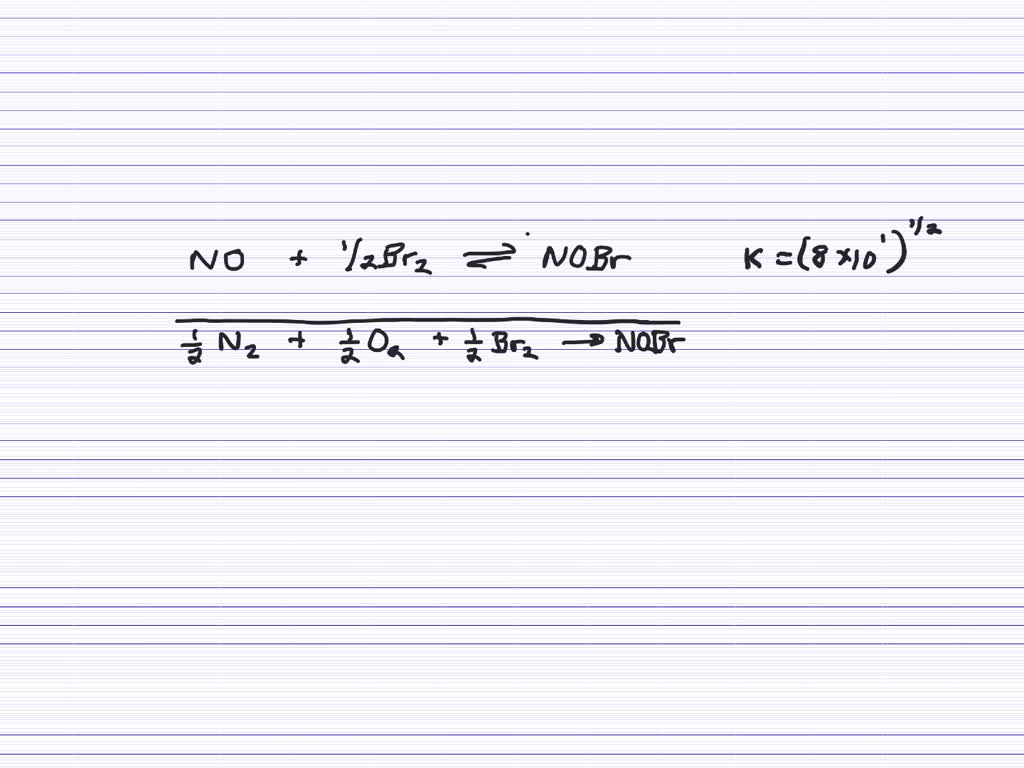 NO + 1/2Br2 ⇌ NOBr K = (8 × 10^1)^1/2
1/2 N2 + 1/2 O2 + 1/2 Br2 → NOBr